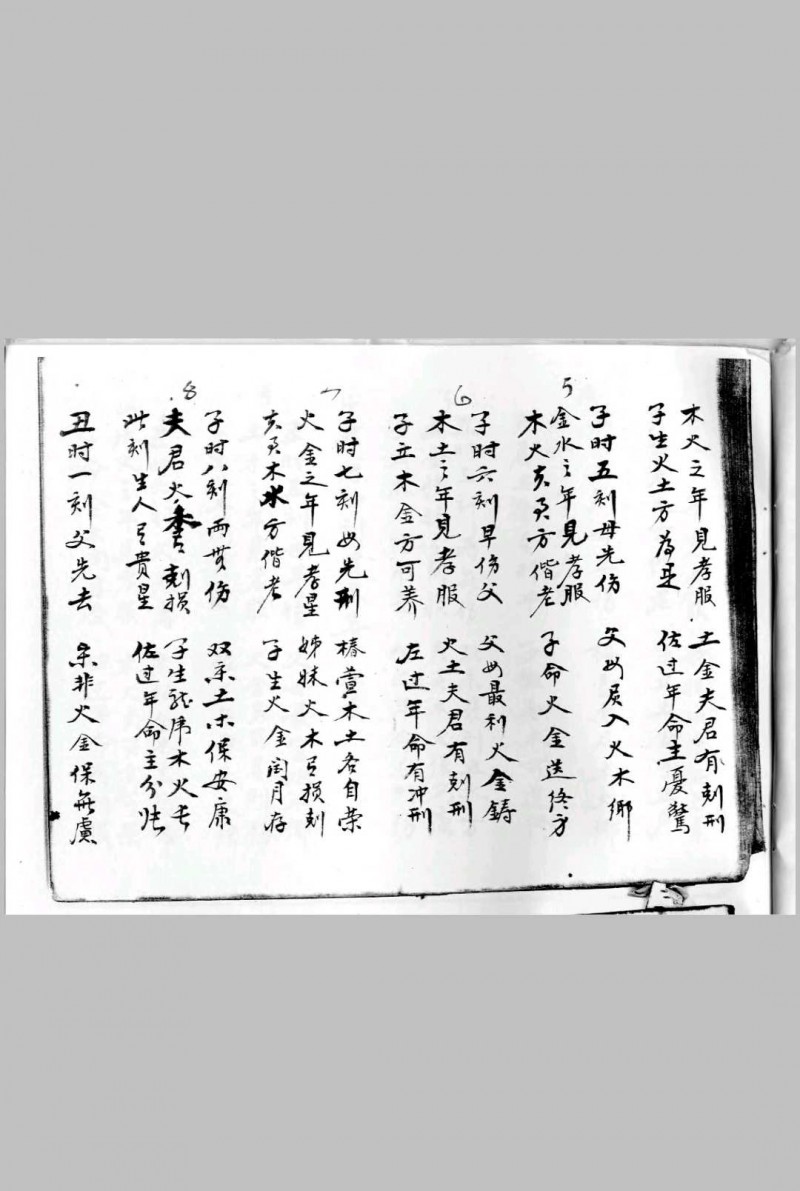 木火之年見孝服 土金夫君有剋刑
子生火土方為足 佐过年命主憂驚
5
子时五刻母先伤 父母頂入火木鄉
金水之年見孝服
木火亥月方偕老 子命火金送终方
6
子时六刻早伤父 父母最利火金鋳
木土之年見孝服 火土夫君有剋刑
子立木金方可养 左过年命有冲刑
7
子时七刻母先刑 椿萱木土各自荣
火金之年見孝星 姊妹火木有损剋
木水方偕老 子生火金闰月存
8
子时八刻两贯伤 双亲土木保安康
夫君火剋损 子生龙虎木火长
此刻生人有貴星 佐过年命主分张
丑时一刻父先去 若非火金保無虞